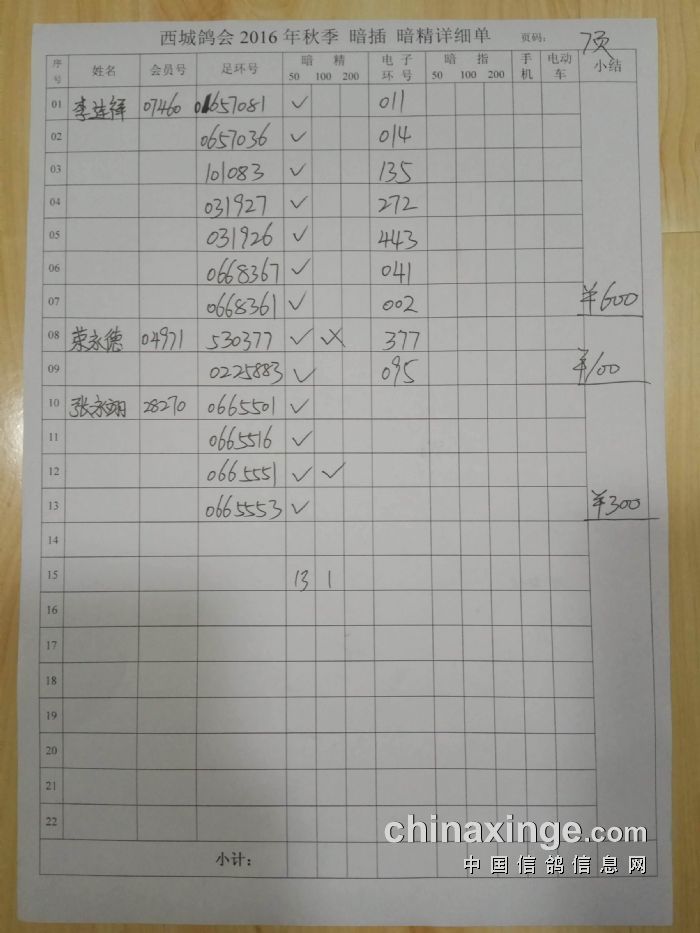 西城鸽会 2016 年秋季 暗插 暗精详细单 页码： 7页
序号 姓名 会员号 足环号 暗 精 50 100 200 电 子 环 号 暗 指 50 100 200 手机 电动车 小结
01 李连祥 07460 01657081 ✓ 011
02 0657036 ✓ 014
03 101083 ✓ 135
04 031927 ✓ 272
05 031926 ✓ 443
06 0668367 ✓ 041
07 0668361 ✓ 002 ¥600
08 荣永德 04971 530377 ✓ 377
09 0225883 ✓ 095 ¥100
10 张永翊 28270 0665501 ✓
11 0665516 ✓
12 0665551 ✓ ✓
13 0665553 ✓ ¥300
14
15 13 1
16
17
18
19
20
21
22
小计：
chinaxinge.com
中国信鸽信息网